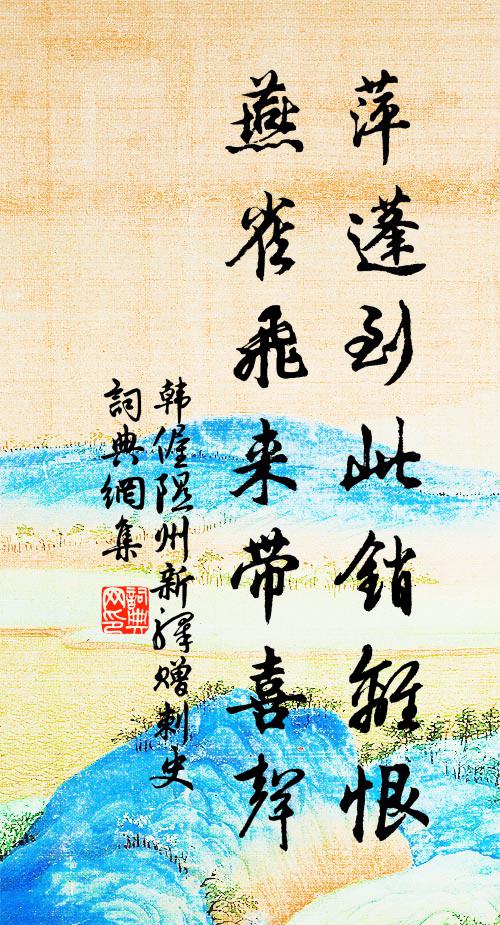 萍蓬到此銷離恨
燕雀飛来带喜聲
韩偓隰州新驿赠刺史
詞典網集
詞典网印